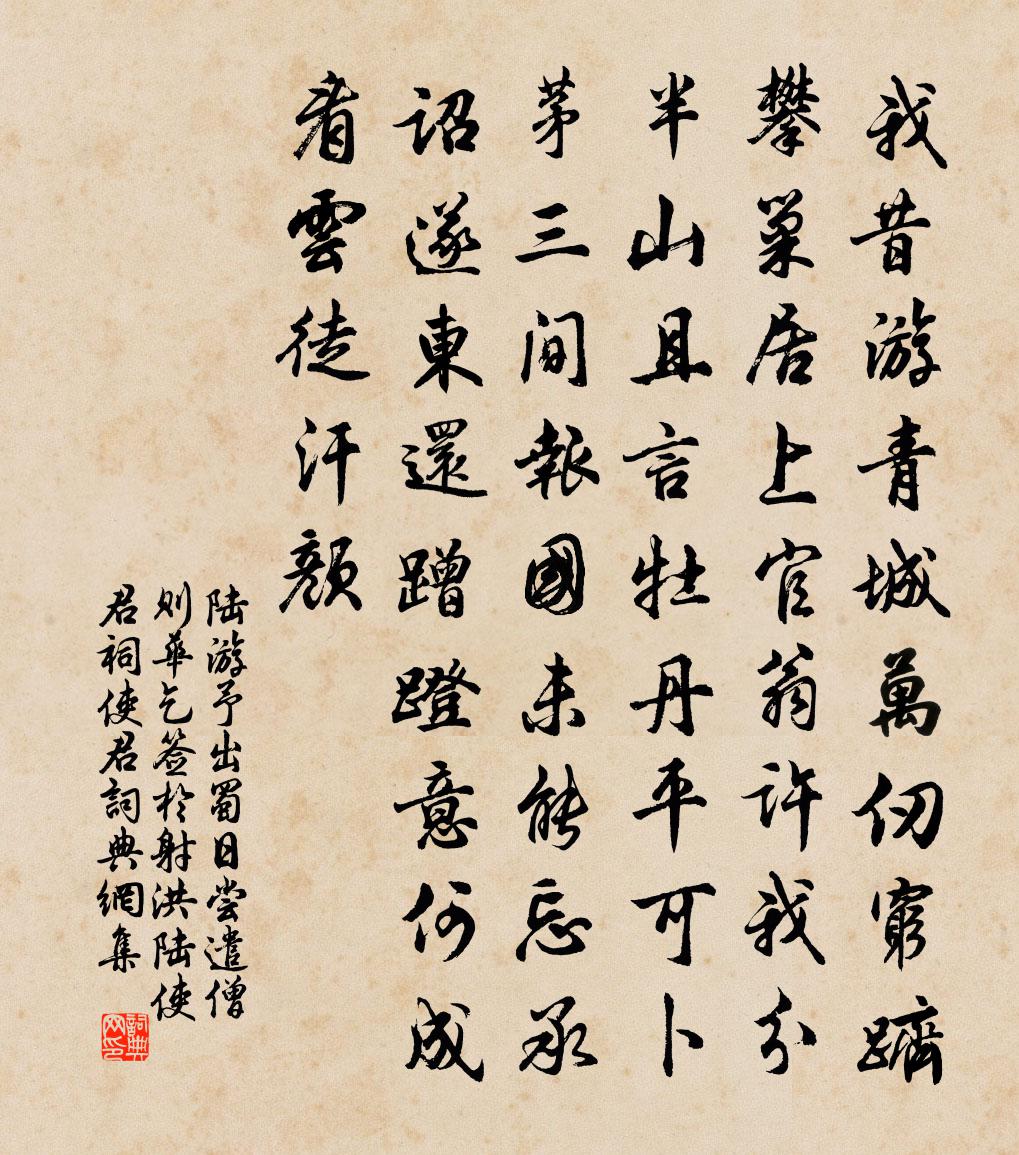 我昔游青城萬仞窮躋
攀巢居上官翁許我分
半山且言牡丹平可卜
茅三間報國未能忘承
詔遂東還蹭蹬意何成
看雲徒汗顏
陸游予出蜀日嘗遣僧
則華乞簽於射洪陸使
君祠使君詞典網集
詞典
网印